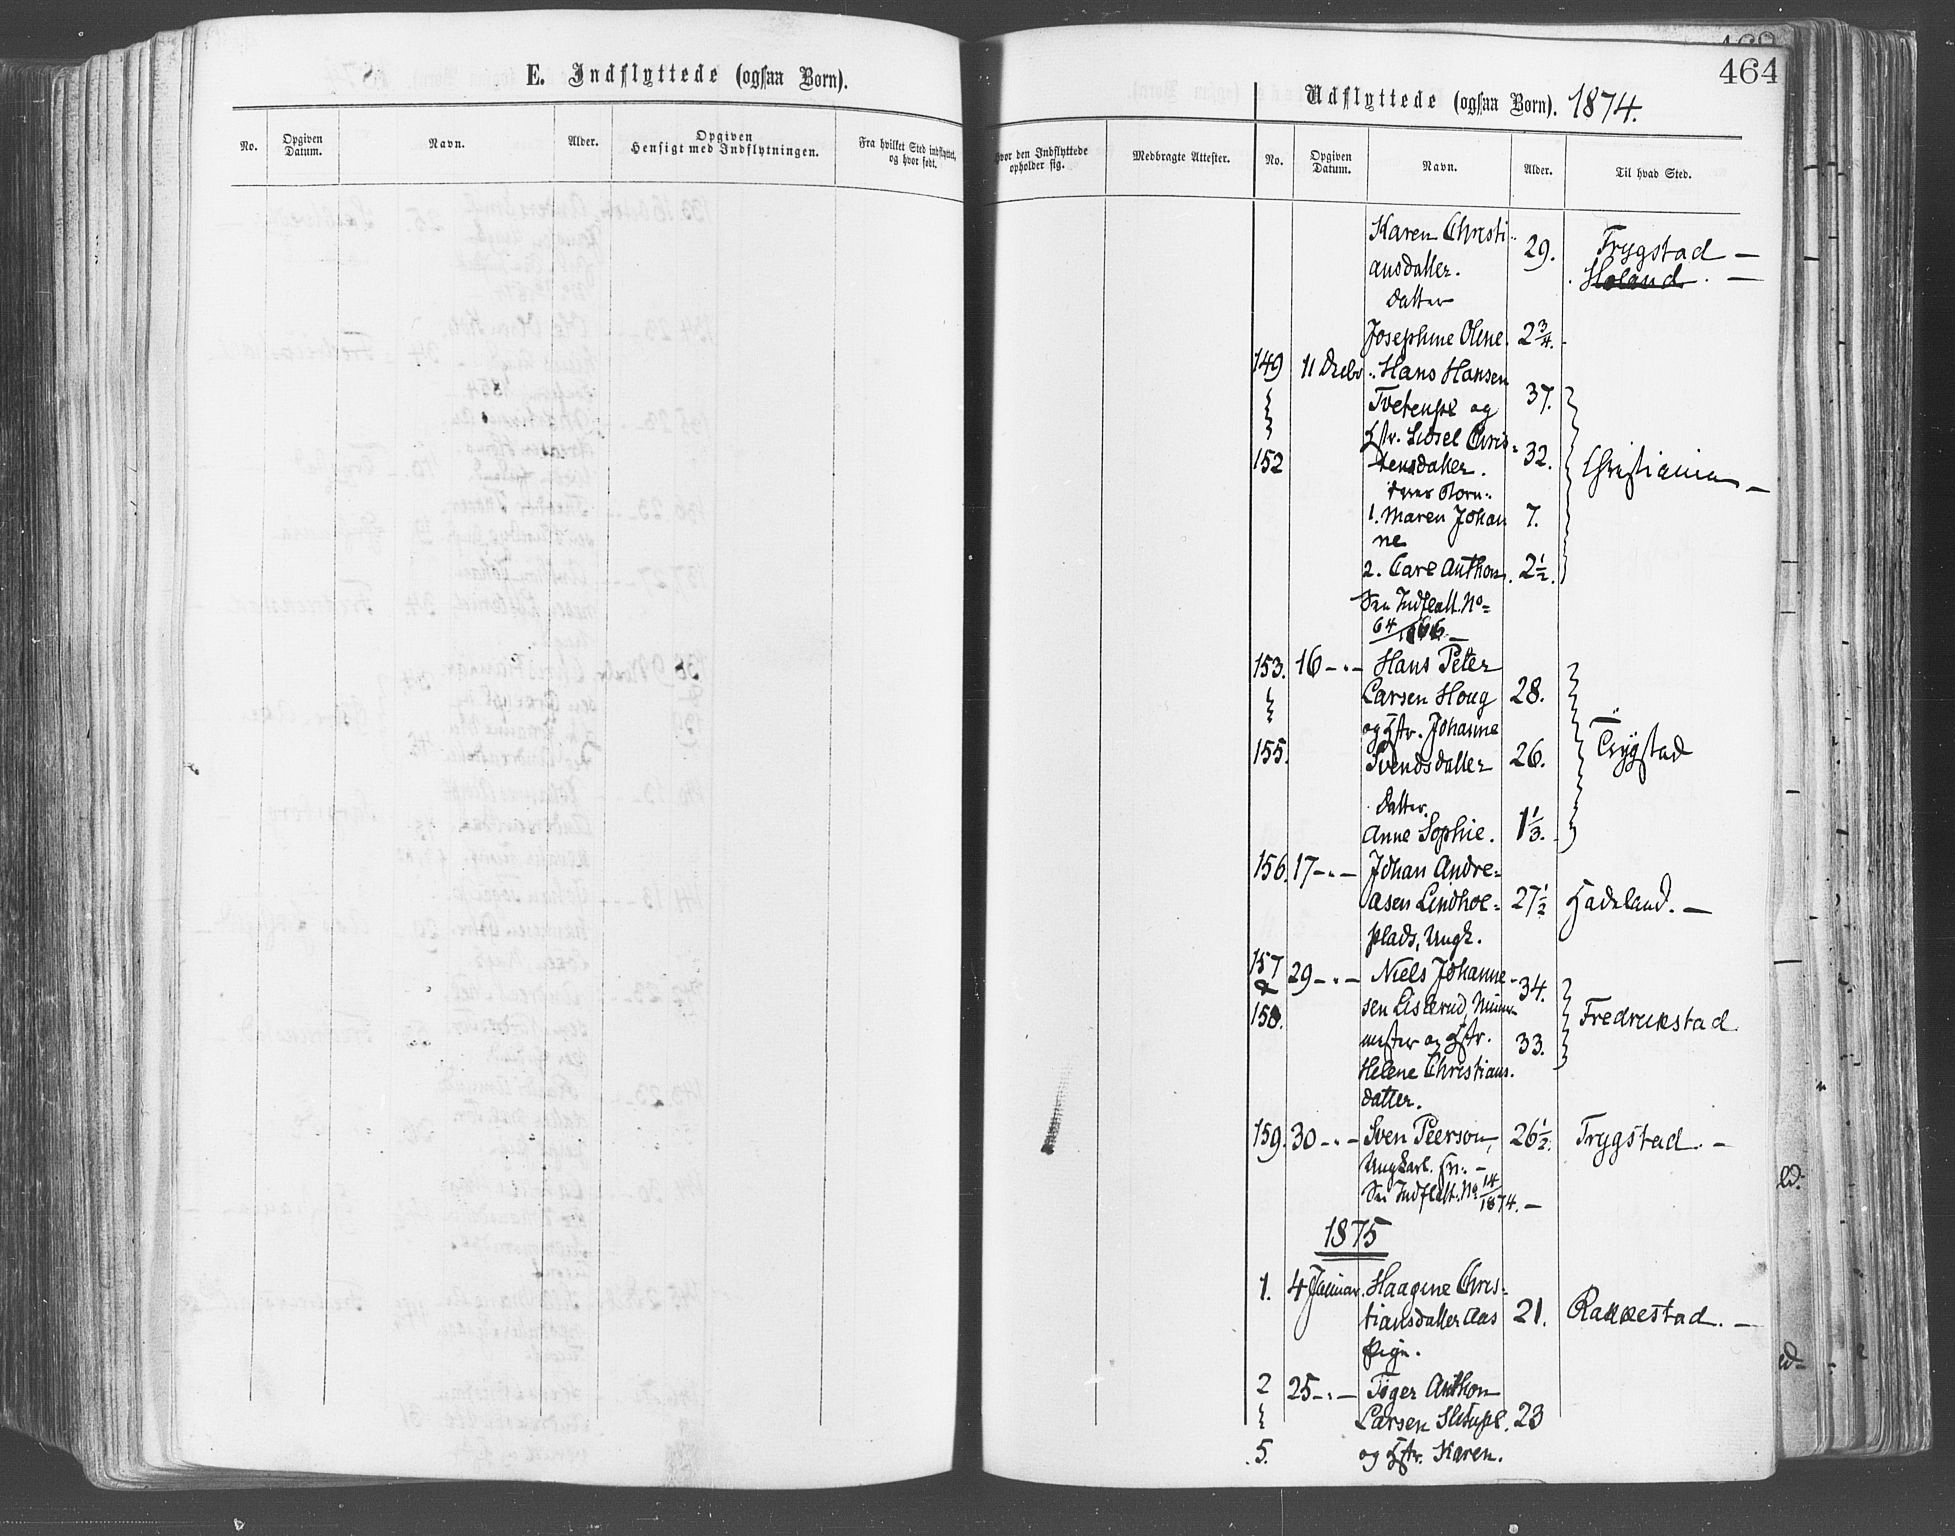 464
E. Indflyttede (ogsaa Børn).
No. Opgiven Datum. Navn. Alder. Opgiven Hensigt med Indflytningen. Fra hvilket Sted indflyttet, og hvor født.
Hvor den Indflyttede opholder sig. Medbragte Attester.
Udflyttede (ogsaa Børn). 1874.
No. Opgiven Datum. Navn. Alder. Til hvad Sted.
Karen Christi-
ansdatter. 29. Trygstad —
Høland —
Datter
Josephine Olene. 2 3/4.
149 11 Decbr. Hans Hansen
Tvetenpl og 37.
Hstr. Lidsel Chris-
152 tensdatter. 32. Christiania —
deres Børn:
1. Maren Johan 7.
ne
2. Carl Anthon. 2 1/2.
See Indflatt. No
64/1866. —
153. 16 — " — Hans Peter
Larsen Houg 28.
og Hstr. Johanne
155. Svendsdatter 26. Trygstad
Datter.
Anne Sophie. 1 1/3.
156. 17 — " — Johan Andre-
asen Lindhol- 27 1/2 Hadeland. —
plads, Ungk.
157 29 — " — Niels Johanne-
& 34.
158. sen Listerud, Muur-
mester og Hstr. Fredrikstad
33.
Helene Christians-
datter.
159. 30 — " — Sven Peerson, 26 1/2. Trygstad. —
Ungkarl.
See Indflatt. No 14/1874. —
1875
1. 4 Januar. Haagine Chris-
tiansdatter Aas 21. Rakkestad. —
Pige.
2 25 — " — Tøger Anthon
Larsen 23
5. og Hstr. Karen.